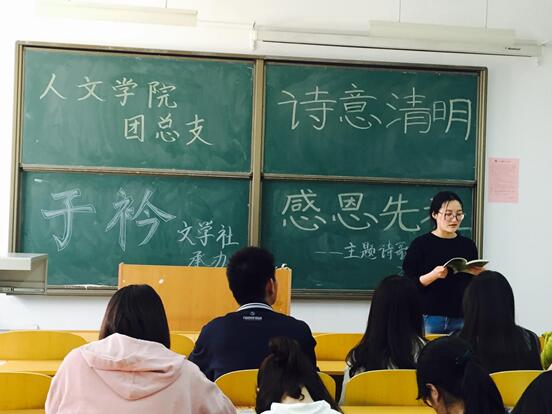 人文学院
团总支
诗意清明
于衿
文学社
承
感恩先
——主题诗歌